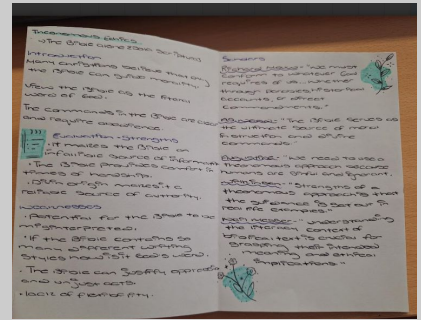 Theonomous Ethics
→ The Bible alone
Introduction
Many Christians believe that only
the Bible can guide morality.
View the Bible as the literal
word of God.
The commands in the Bible are
and require obedience.
Evaluation - Strengths
• It makes the Bible an
infallible source of information
• The Bible provides comfort in
times of hardship.
• Divine origin makes it a
reliable source of authority.
Weaknesses
• Potential for the Bible to be
misinterpreted.
• If the Bible contains so
many different writing
styles how is it God's word.
• The Bible can justify
and unjust acts.
• Lack of flexibility.
Scholars
"We must
conform to whatever God
requires of us... whether
through
accounts, or direct
commandments."
"The Bible serves as
the ultimate source of moral
instruction and divine
commands."
"We need to use a
theonomous approach because
humans are sinful and ignorant."
"Strengths of a
theonomous approach is that
the guidance is set out in
real life examples."
"understanding
the literary context of
biblical text is crucial for
grasping their intended
meaning and ethical
implications."